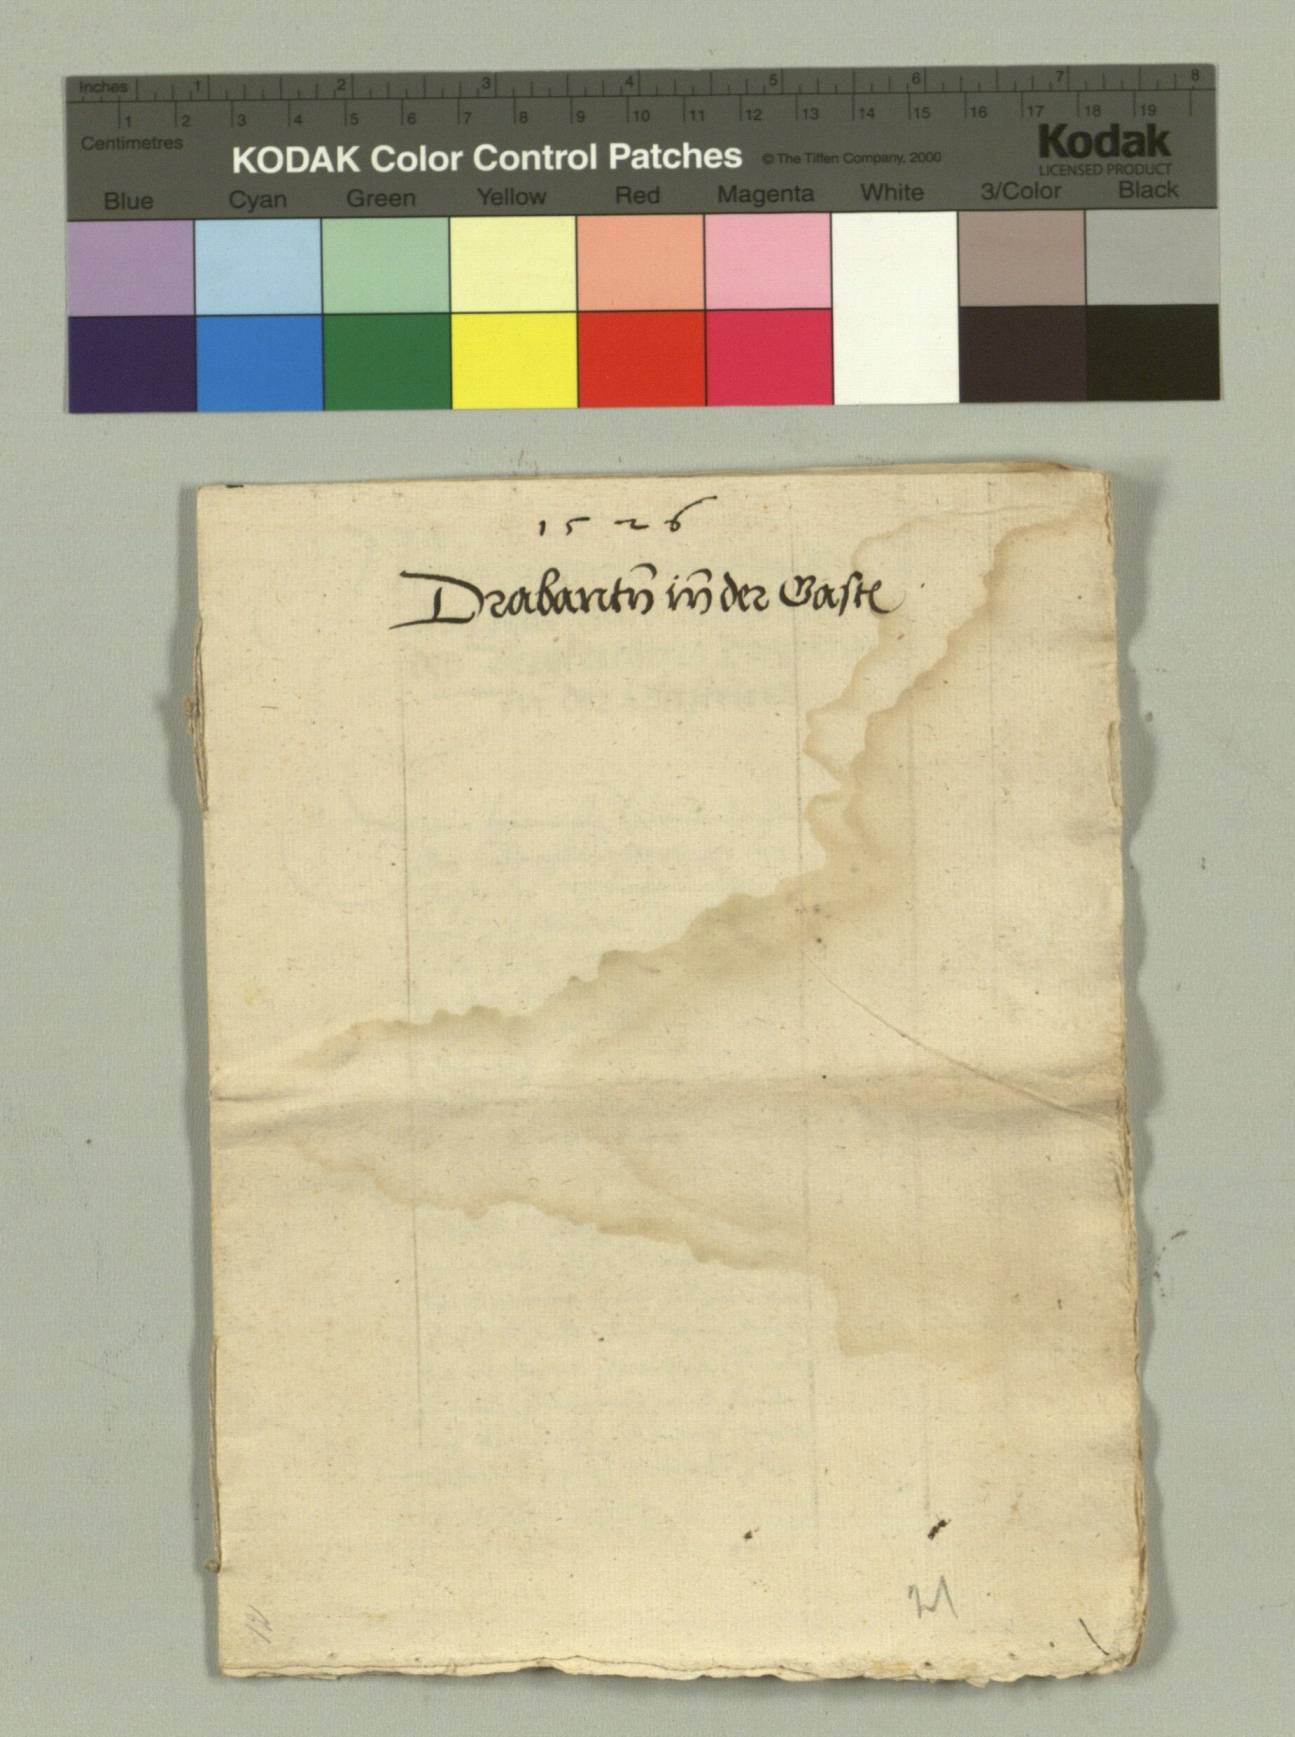 Inches 1 2 3 4 5 6 7 8
1 2 3 4 5 6 7 8 9 10 11 12 13 14 15 16 17 18 19
Centimetres
KODAK Color Control Patches © The Tiffen Company, 2000 Kodak
LICENSED PRODUCT
Blue Cyan Green Yellow Red Magenta White 3/Color Black
1526
Drabantn̄ in̄ der Gaste
21